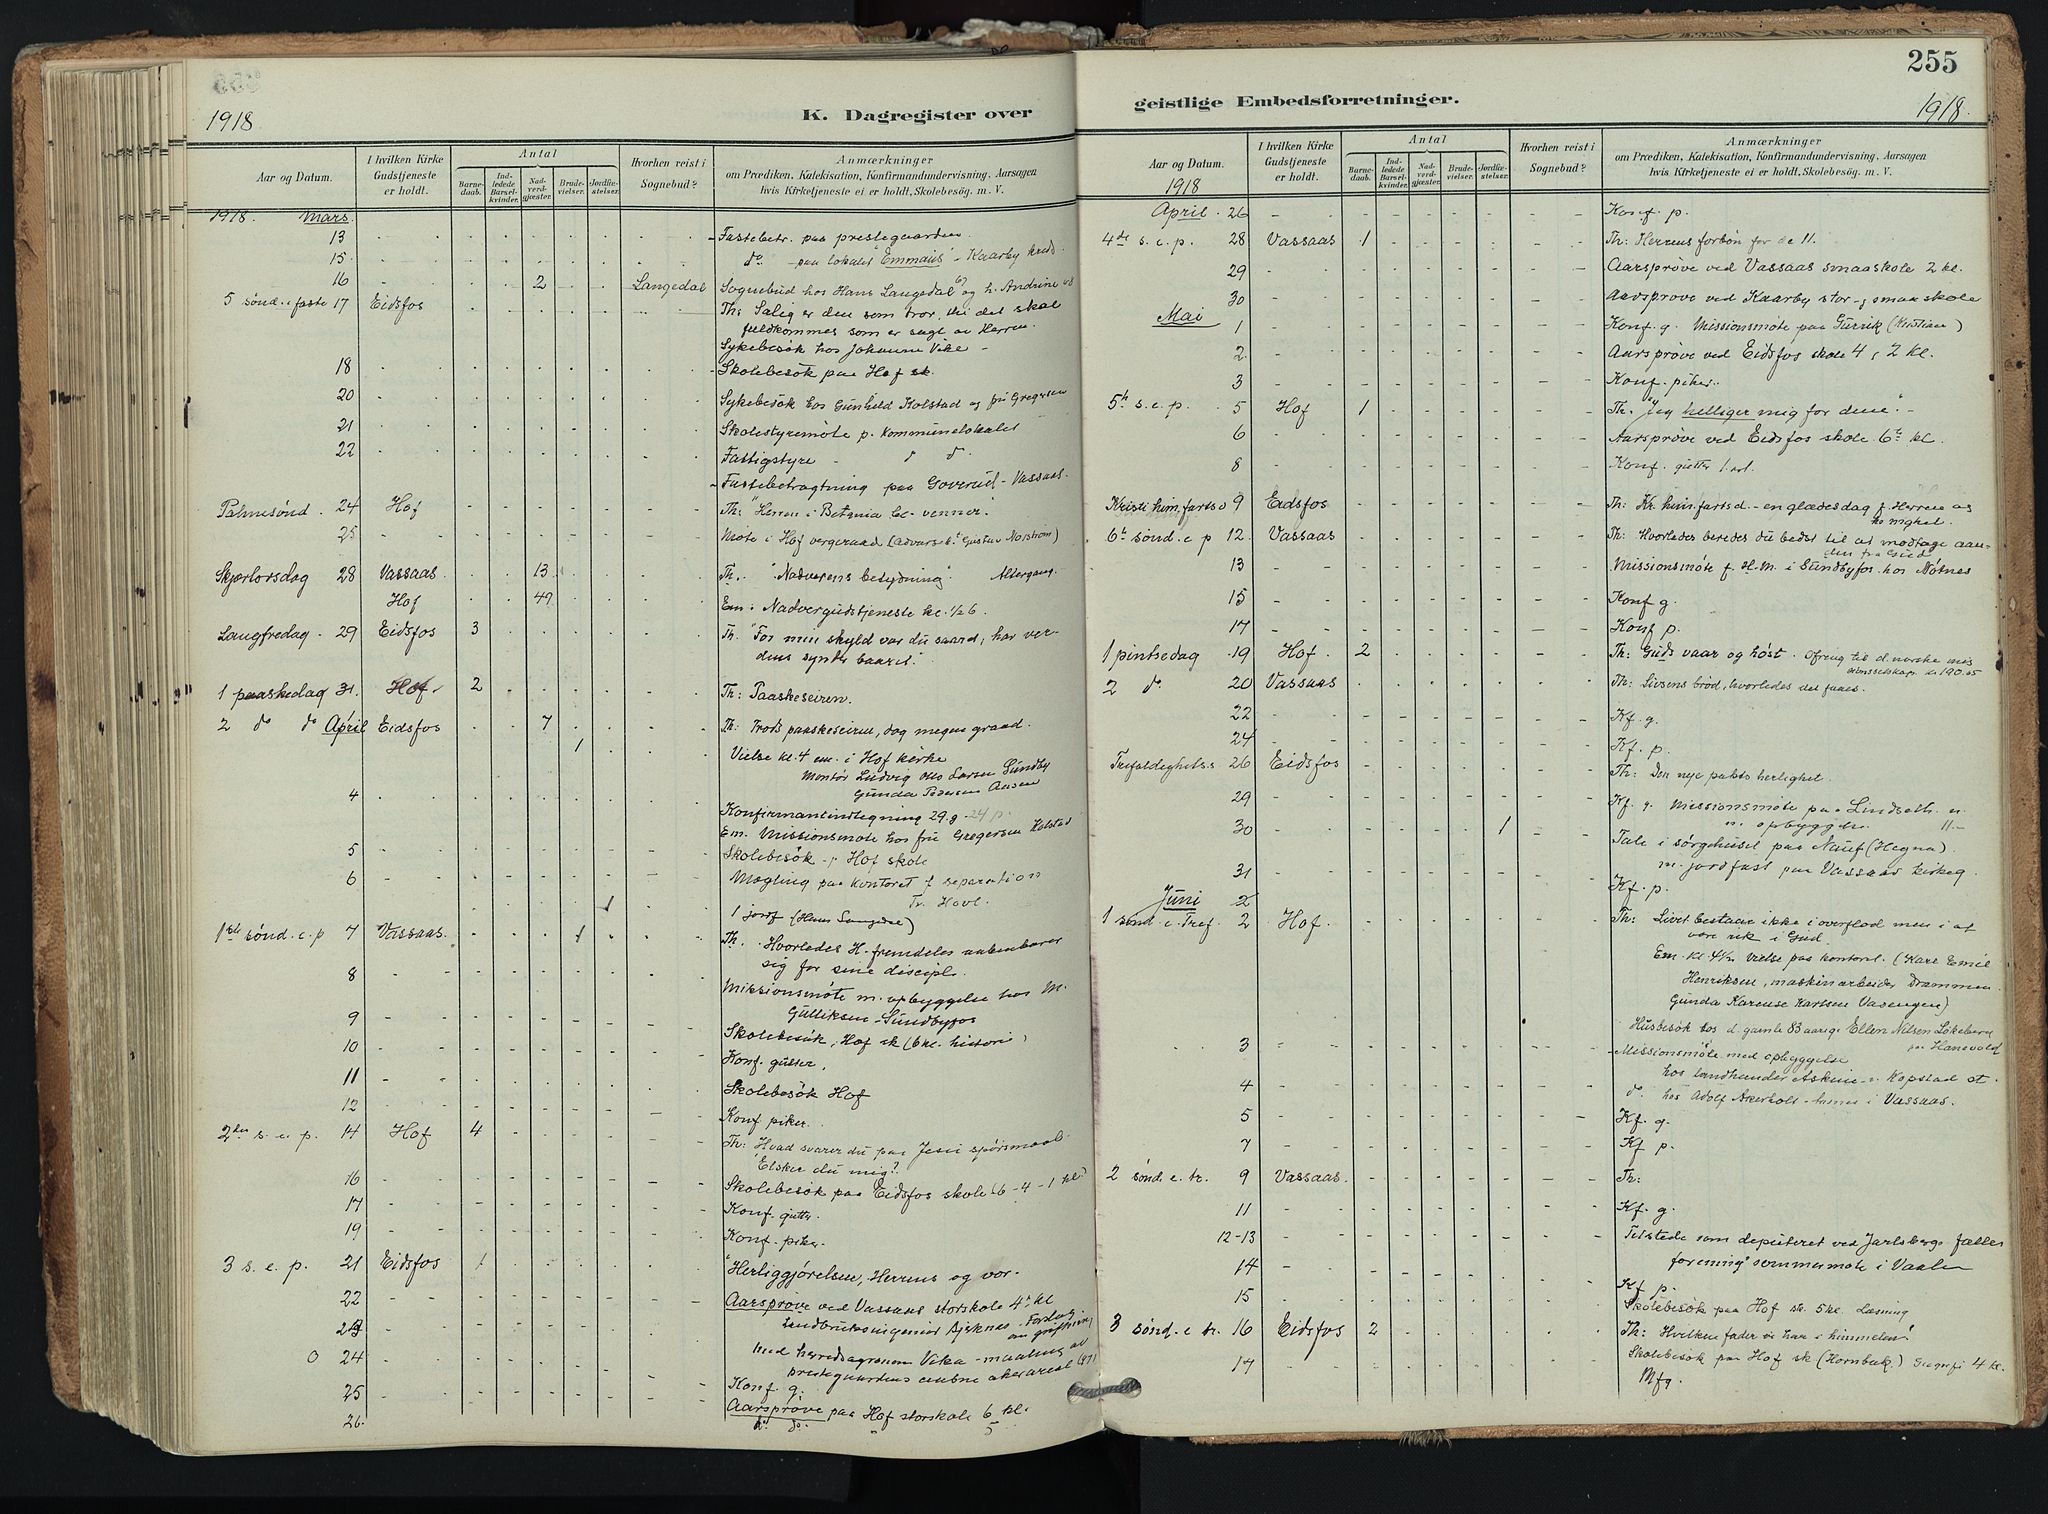 1918
K. Dagregister over
Aar og Datum.
I hvilken Kirke Gudstjeneste er holdt.
Antal
Barnedaab.
Indledede Barselkvinder.
Nadverdgjæster.
Brudevielser.
Jordfæstelser.
Hvorhen reist i Sognebud?
Anmærkninger
om Prædiken, Katekisation, Konfirmandundervisning, Aarsagen
hvis Kirketjeneste ei er holdt, Skolebesøg. m. V.
1918. Mars.
13 Fastebetr. paa prestegaarden
15 do paa lokalet Emmaus - Kaarby kreds
16 2 Langedal Sognebud hos Hans Langedal og h. Andrine
5 sønd. i faste 17 Eidsfos Th: Salig er den som tror, thi det skal
fuldkommes som er sagt av Herren.
Sykebesøk hos Johanne Vike -
18 Skolebesøk paa Hof sk.
20 Sykebesøk hos Gunhild Kolstad og fru Gregersen
21 Skolestyremøte p. kommunelokalet
22 Fattigstyre - do do
Fastebetragtning paa Goverud - Vassaas.
Palmesønd. 24 Hof Th: "Herren i Betania bl. venner".
25 Møte i Hof vergeraad
Skjærtorsdag 28 Vassaas 13 Th. "Nadverens betydning" Altergang.
Hof 49 Em: Nadvergudstjeneste kl. 1/2 6.
Langfredag 29 Eidsfos 3 Th. "For min skyld var du saard, har ver-
dens synder baaret."
1 paaskedag 31. Hof 2 Th: Paaskeseiren.
2 do do April 1 Eidsfos 7 Th: Trods paaskeseiren, dog megen graad.
1 Vielse kl. 4 em. i Hof kirke
Montør Ludvig Larsen Sundby
Gunda Pedersen Aasen
4 Konfirmantindtegning 29 g - 24 p.
Em. Missionsmøte hos fru Gregersen Kolstad
5 Skolebesøk - Hof skole
6 Mægling paa kontoret f. separation
1 1 jordf. (Hans Langedal)
1ste sønd. e. p 7 Vassaas. 1 Th. Hvorledes H. fremdeles aabenbarer
sig for sine discipl.
8 Missionsmøte m. opbyggelse hos M.
Gulliksen - Sundbyfos
9 Skolebesøk, Hof sk (6 kl. historie)
10 Konf. gutter.
11 Skolebesøk Hof
12 Konf. piker.
2den s. e. p. 14 Hof 4 Th: Hvad svarer du paa Jesu spørsmaal.
Elsker du mig?
16 Skolebesøk paa Eidsfos skole (6 - 4 - 1 kl.)
17 Konf. gutter.
19 Konf. piker.
3 s. e. p. 21 Eidsfos 1 "Herliggjørelsen, Herrens og vor.
22 Aarsprøve ved Vassaas storskole 4de kl
23 Landbruksingeniør
24 med herredsagronom Vika - maaling av
prestegaardens
25 Konf. g.
26. Aarsprøve paa Hof storskole 6 kl.
do do
geistlige Embedsforretninger.
255
1918.
Aar og Datum.
1918
I hvilken Kirke Gudstjeneste er holdt.
Antal
Barnedaab.
Indledede Barselkvinder.
Nadverdgjæster.
Brudevielser.
Jordfæstelser.
Hvorhen reist i Sognebud?
Anmærkninger
om Prædiken, Katekisation, Konfirmandundervisning, Aarsagen
hvis Kirketjeneste ei er holdt, Skolebesøg. m. V.
April 26 Konf. p.
4de s. e. p. 28 Vassaas 1 Th: Herrens forbøn for de 11.
29 Aarsprøve ved Vassaas smaaskole 2 kl.
30 Aarsprøve ved Kaarby stor- g smaaskole
Mai 1 Konf. g. Missionsmøte paa Gurrik (Kristian)
2 Aarsprøve ved Eidsfos skole 4 g 2 kl.
3 Konf. piker.
5te s. e. p. 5 Hof 1 Th. "Jeg helliger mig for dem".
6 Aarsprøve ved Eidsfos skole 6te kl.
8 Konf. gutter
Kristi him. fartsd 9 Eidsfos Th: Kr. him. fartsd. - en glædesdag f. Herren og
menighet.
6te sønd. e p 12. Vassaas Th: Hvorledes beredes du bedst til at modtage aan-
den fra Gud
13 Missionsmøte f. H. M. i Sundbyfos hos Nøtnes
15 Konf g.
17 Konf p.
1 pintsedag 19 Hof 2 Th: Guds vaar og høst. Ofring til d. norske mis
sionsselskap kr 190.05
2 do 20 Vassaas Th: Livsens brød, hvorledes det faaes.
22 Kf. g.
24 Kf. p.
Trefoldighets.s 26 Eidsfos Th: Den nye pakts herlighet.
29 Kf. g. Missionsmøte paa Lindseth
m. opbyggelse
30 1 Tale i sørgehuset paa Nauf (Hegna).
m. jordfæst paa Vassaas kirkeg.
31 Kf. p.
Juni 2
1 sønd. e. Tref. 2 Hof. Th: Livet bestaar ikke i overflod men i at
være rik i Gud.
Em. kl. 4 1/2 vielse paa kontoret. (Kare Emil
Henriksen, maskinarbeider Drammen.
Gunda Karense Karlsen Vasengen)
Husbesøk hos d. gamle 83 aarige Ellen Nilsen
paa Hanevold
3 Missionsmøte med opbyggelse
hos landhandler Askim - Kopstad st.
4 do hos Adolf Akerholt - i Vassaas.
5 Kf. g.
7 Kf p.
2 sønd. e. tr. 9 Vassaas. Th:
11 Kf. g.
12-13 Tilstede som deputeret ved Jarlsbergs fælles
14 forenings sommermøte i Vaale
Kf p.
15 Skolebesøk paa Hof sk. 5 kl. Læsning
3 sønd. e tr. 16 Eidsfos 2 Th: Hvilken fader vi har i himmelen!
17 Skolebesøk paa Hof sk (Hornbæk.) 4 kl.